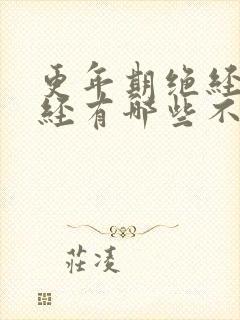 更年期绝经
经有哪些不
莊凌